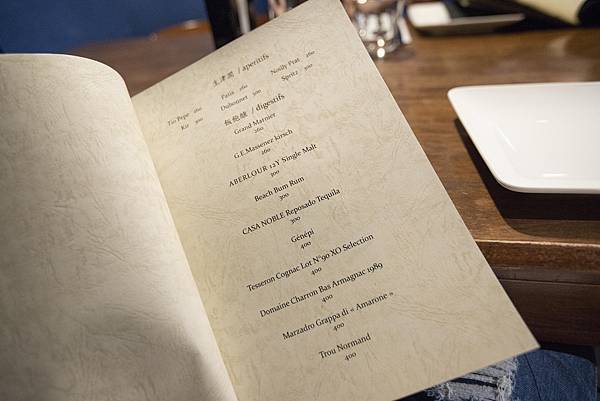 生津酒 / aperitifs
Tio Pepe 260 Patis 260 Noilly Prat 260
Kir 300 Dubonnet 300 Spritz 300
飯他酸 / digestifs
Grand Marnier
260
G.E.Massenez kirsch
260
ABERLOUR 12Y Single Malt
300
Beach Bum Rum
300
CASA NOBLE Reposado Tequila
300
Génépi
400
Tesseron Cognac Lot N°90 XO Selection
400
Domaine Charron Bas Armagnac 1989
400
Marzadro Grappa di « Amarone »
400
Trou Normand
400